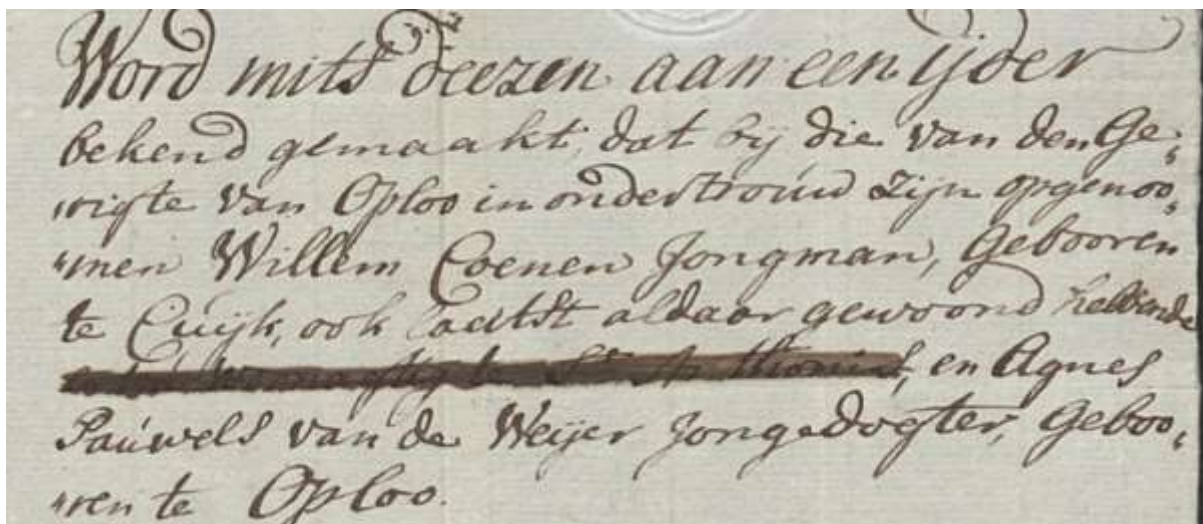 Word mits deezen aan een ijder
bekend gemaakt, dat bij die van den Ge„
„rigte van Oploo in ondertrouw zijn opgenoo„
„men Willem Coenen Jongman, Gebooren
te Cuijk, ook laatst aldaar gewoond hebbende
en Agnes
Pauwels van de Weijer Jongedogter, Geboo„
„ren te Oploo.